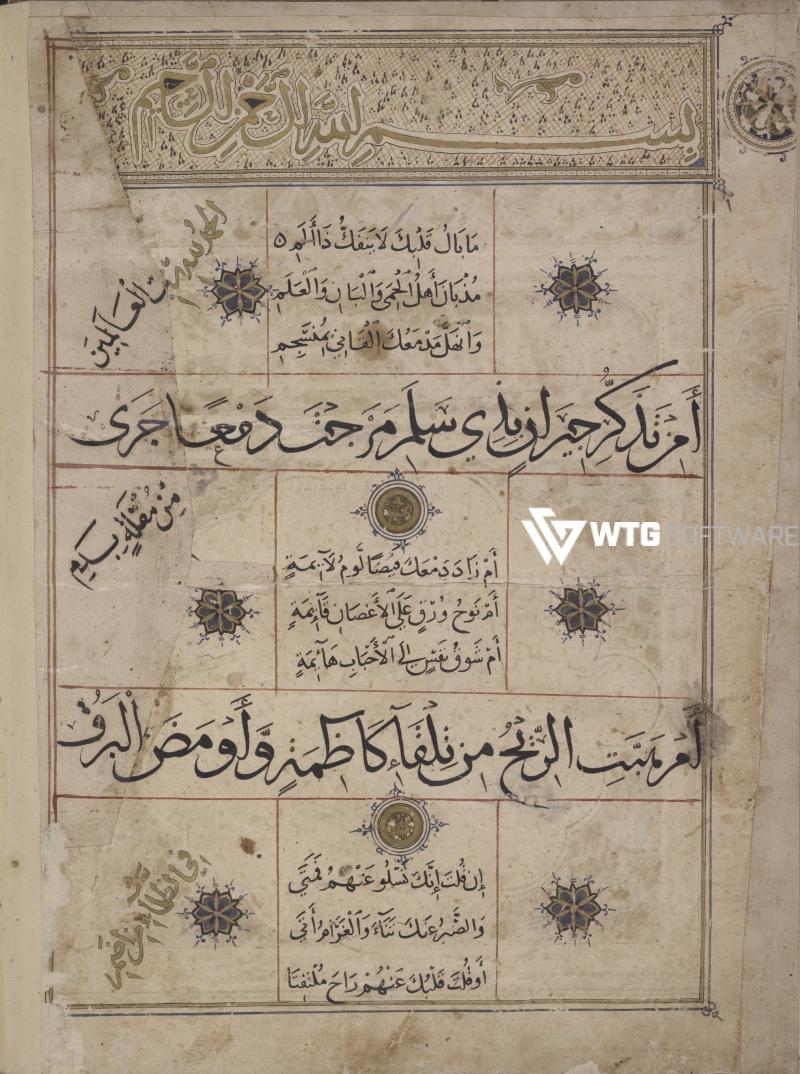 بسم الله الرحمن الرحيم
الحمد لله رب العالمين
مَا بَالُ قَلْبِكَ لَا يَنْفَكُّ ذَا أَلَمٍ
مُذْ بَانَ أَهْلُ الْحِمَى وَالْبَانِ وَالْعَلَمِ
وَانْهَلَّ مَدْمَعُكَ الْقَانِي بِمُنْسَجِمِ
أَمِنْ تَذَكُّرِ جِيرَانٍ بِذِي سَلَمٍ مَزَجْتَ دَمْعًا جَرَى
مِنْ مُقْلَةٍ بِدَمِ
WTG SOFTWARE
أَمْ زَادَ دَمْعُكَ فَيْضًا لَوْمُ لَائِمَةٍ
أَمْ نَوْحُ وُرْقٍ عَلَى الْأَغْصَانِ قَائِمَةٍ
أَمْ شَوْقُ نَفْسٍ إِلَى الْأَحْبَابِ هَائِمَةٍ
أَمْ هَبَّتِ الرِّيحُ مِنْ تِلْقَاءِ كَاظِمَةٍ وَأَوْمَضَ الْبَرْقُ
فِي الظَّلْمَاءِ مِنْ إِضَمِ
إِنْ قُلْتَ إِنَّكَ تَسْلُو عَنْهُمُ فَمَتَى
وَالصَّبْرُ عَنْكَ تَنَاءَ وَالْغَرَامُ أَتَى
أَوْ قُلْتَ قَلْبُكَ عَنْهُمْ رَاحَ مُلْتَفِتَا